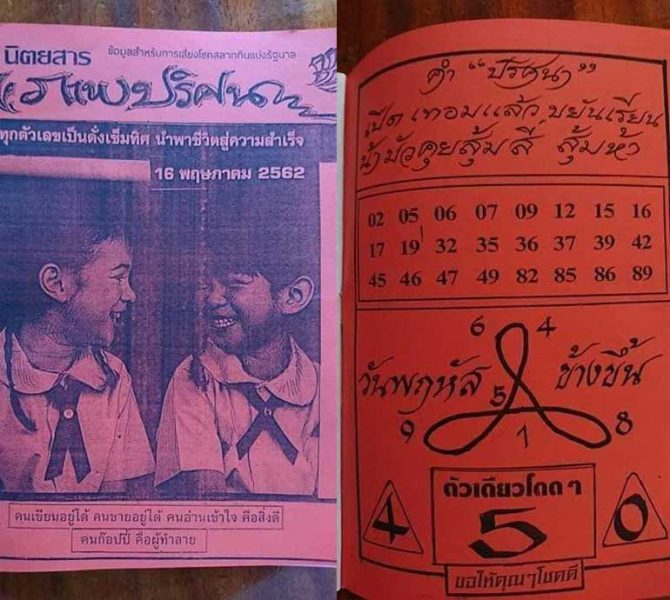 นิตยสาร
ข้อมูลสำหรับการเสี่ยงโชคสลากกินแบ่งรัฐบาล
ภาพปริศนา
ทุกตัวเลขเป็นดั่งเข็มทิศ นำพาชีวิตสู่ความสำเร็จ
16 พฤษภาคม 2562
คนเขียนอยู่ได้ คนขายอยู่ได้ คนอ่านเข้าใจ คือสิ่งดี
คนก๊อปปี้ คือผู้ทำลาย
คำ "ปริศนา"
เปิดเทอมแล้ว ขยันเรียน
น้ำมัวคุยสุ้มสี่ สุ้มห้า
02 05 06 07 09 12 15 16
17 19 32 35 36 37 39 42
45 46 47 49 82 85 86 89
6 4
วันพฤหัส 5 ข้างขึ้น
9 1 8
ตัวเดียวโดดๆ
4 5 0
ขอให้คุณๆโชคดี